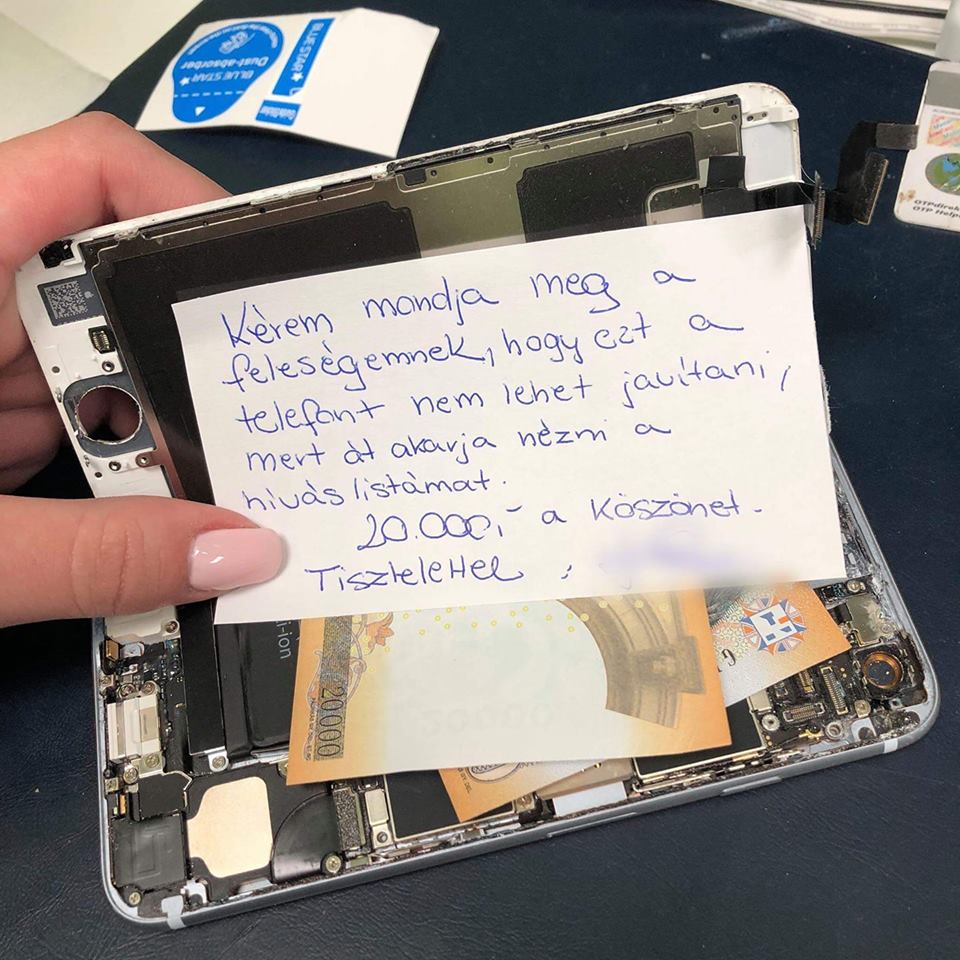 BLUE STAR
Dust-absorber
BLUE STAR
GuideSticker
OTPdirekt
OTP Help
Kérem mondja meg a
feleségemnek, hogy ezt a
telefont nem lehet javítani,
mert át akarja nézni a
hívás listámat.
20.000,- a köszönet.
Tisztelettel:
Li-ion
20000
20000
19